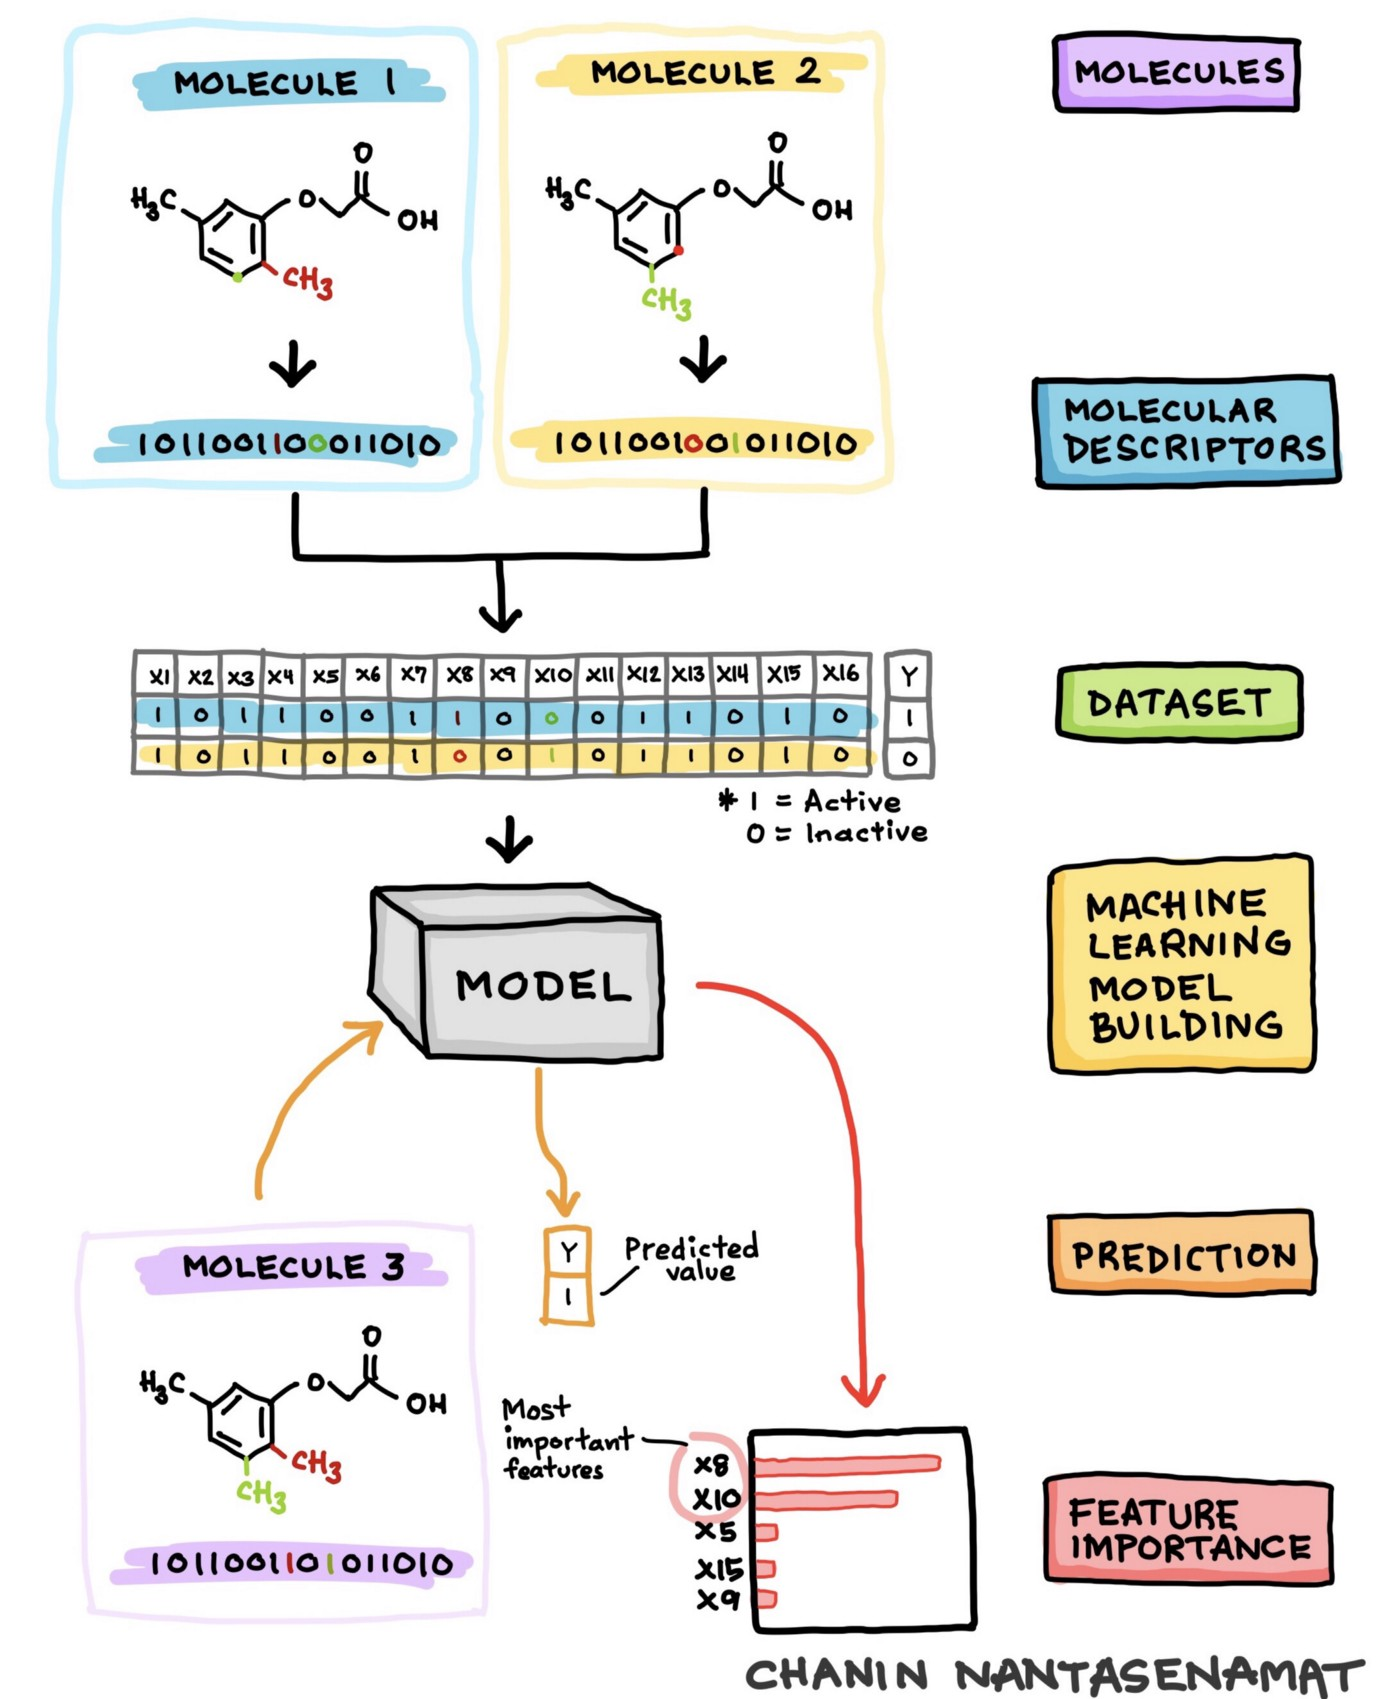 MOLECULE 1
MOLECULE 2
MOLECULES
O
H3C
O
OH
CH3
O
H3C
O
OH
CH3
1011001100011010
1011001001011010
MOLECULAR
DESCRIPTORS
X1 X2 X3 X4 X5 X6 X7 X8 X9 X10 X11 X12 X13 X14 X15 X16 Y
1 0 1 1 0 0 1 1 0 0 0 1 1 0 1 0 1
1 0 1 1 0 0 1 0 0 1 0 1 1 0 1 0 0
* 1 = Active
0 = Inactive
DATASET
MODEL
MACHINE
LEARNING
MODEL
BUILDING
MOLECULE 3
O
H3C
O
OH
CH3
CH3
1011001101011010
Y
1
Predicted
value
PREDICTION
Most
important
features
X8
X10
X5
X15
X9
FEATURE
IMPORTANCE
CHANIN NANTASENAMAT